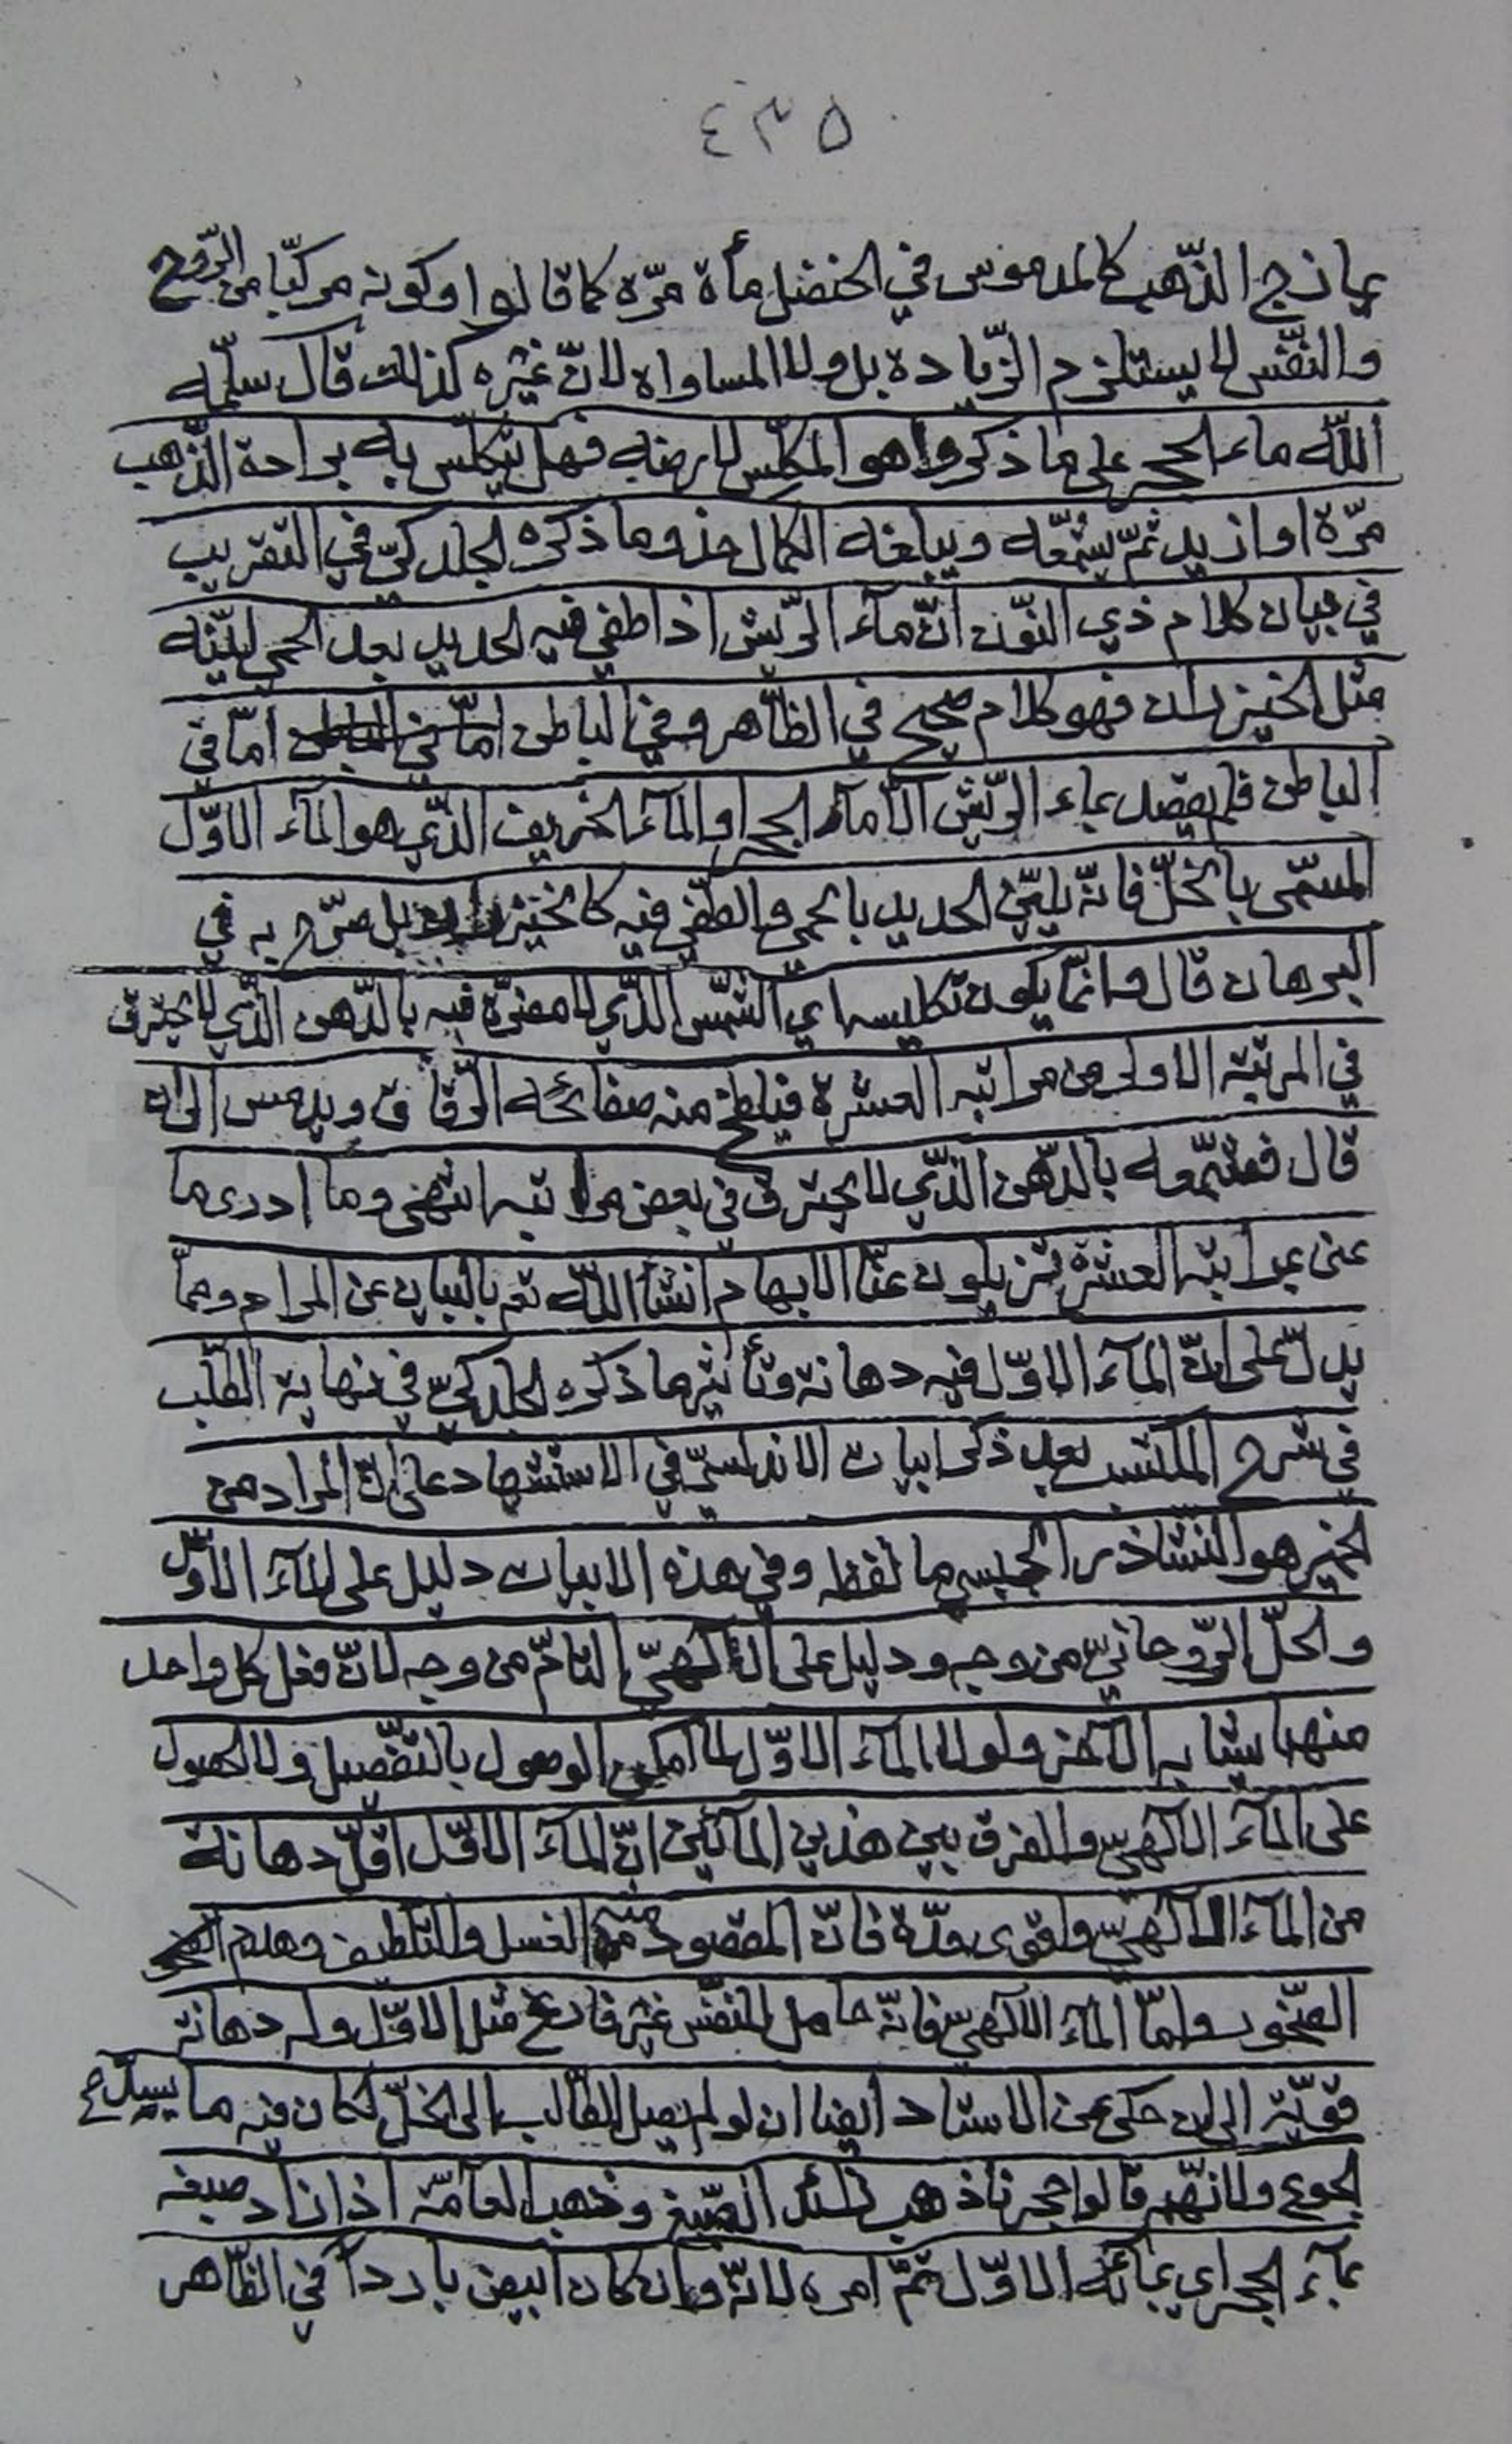 ٤٣٥
يمازج الذّهب كالمدموس في الحنضل مأة مرّة كما قالوا وكونه مركبّا من الرّوح
والنّفس لا يستلزم الزّيادة بل ولا المساواه لانّ غيره كذالك قال سلّمه
اللّه ماء الحجر على ما ذكروا هو المكلّس لارضه فهل يتكلّس به برادة الذّهب
مرّة او ازيد ثمّ يشمّعه ويبلغه الكمال حذو ما ذكره الجلدكيّ في التقريب
في بيان كلام ذي النّون انّ مآء الرّيش اذا طفي فيه الحديد بعد الحمى ليّنه
مثل الخيزران فهو كلام صحيح في الظّاهر وفي الباطن امّا في الباطن امّا في
الباطن فلم يقصد بماء الرّيش الّا مآء الحجر او المآء الخريف الذّي هو المآء الاوّل
المسّمى بالخلّ فانّه يليّن الحديد بالحمى والطّفي فيه كالخيزران بل صرّح به في
البرهان قال وانمّا يكون تكليسه اي الشّمس الذّي لا مضرّة فيه بالدّهن الذّي لا يحترق
في المرتبة الاولى من مراتبه العشرة فيلطخ منه صفائحه الرّقاق ويدمس الى ان
قال فشمّعوه بالدّهن الذّي لا يحترق في بعض مراتبه انتهى وما ادرى ما
عنى بمراتبه العشرة تزيلون عنّا الابهام انشأ اللّه تعم بالبيان عن المرام وممّا
يدلّ على انّ المآء الاوّل فيه دهانة وتأثير ما ذكره الجلدكيّ في نهاية الطّلب
في شرح المكتسب بعد ذكر ابيات الاندلسيّ في الاستشهاد على انّ المراد من
الخمير هو النشاذر الجلبسى ما لفظه وفي هذه الابيات دليل على المآء الاوّل
والحلّ الرّوحانيّ من وجه ودليل على الالٓهيّ التامّ من وجه لانّ فعل كل واحد
منهما يشابه الآخر ولولا المآء الاوّل لما امكن الوصول بالتفّصيل ولا الحصول
على المآء الالٓهيّ والفرق بين هذين المائين انّ المآء الاوّل اقلّ دهانة
من المآء الالٓهيّ واقوى حدّة فانّ المقصود منه الغسل والتلّطيف وهدم
الصّخور وامّا المآء الالٓهيّ فانّه حامل للنفّس غير فارغ مثل الاوّل وله دهانة
قويّة الى ان حكى عن الاستاد ايضا ان لو لم يصل الطّالب الى الخلّ لكان فيه ما يسدّ
الجوع ولانّهم قالوا حجرنا ذهب زائد الصّبغ وذهب العامّة اذا زاد صبغه
بمآء الحجر اي بمائه الاوّل تمّ امره لانّه وان كان ابيض بارداً في الظّاهر